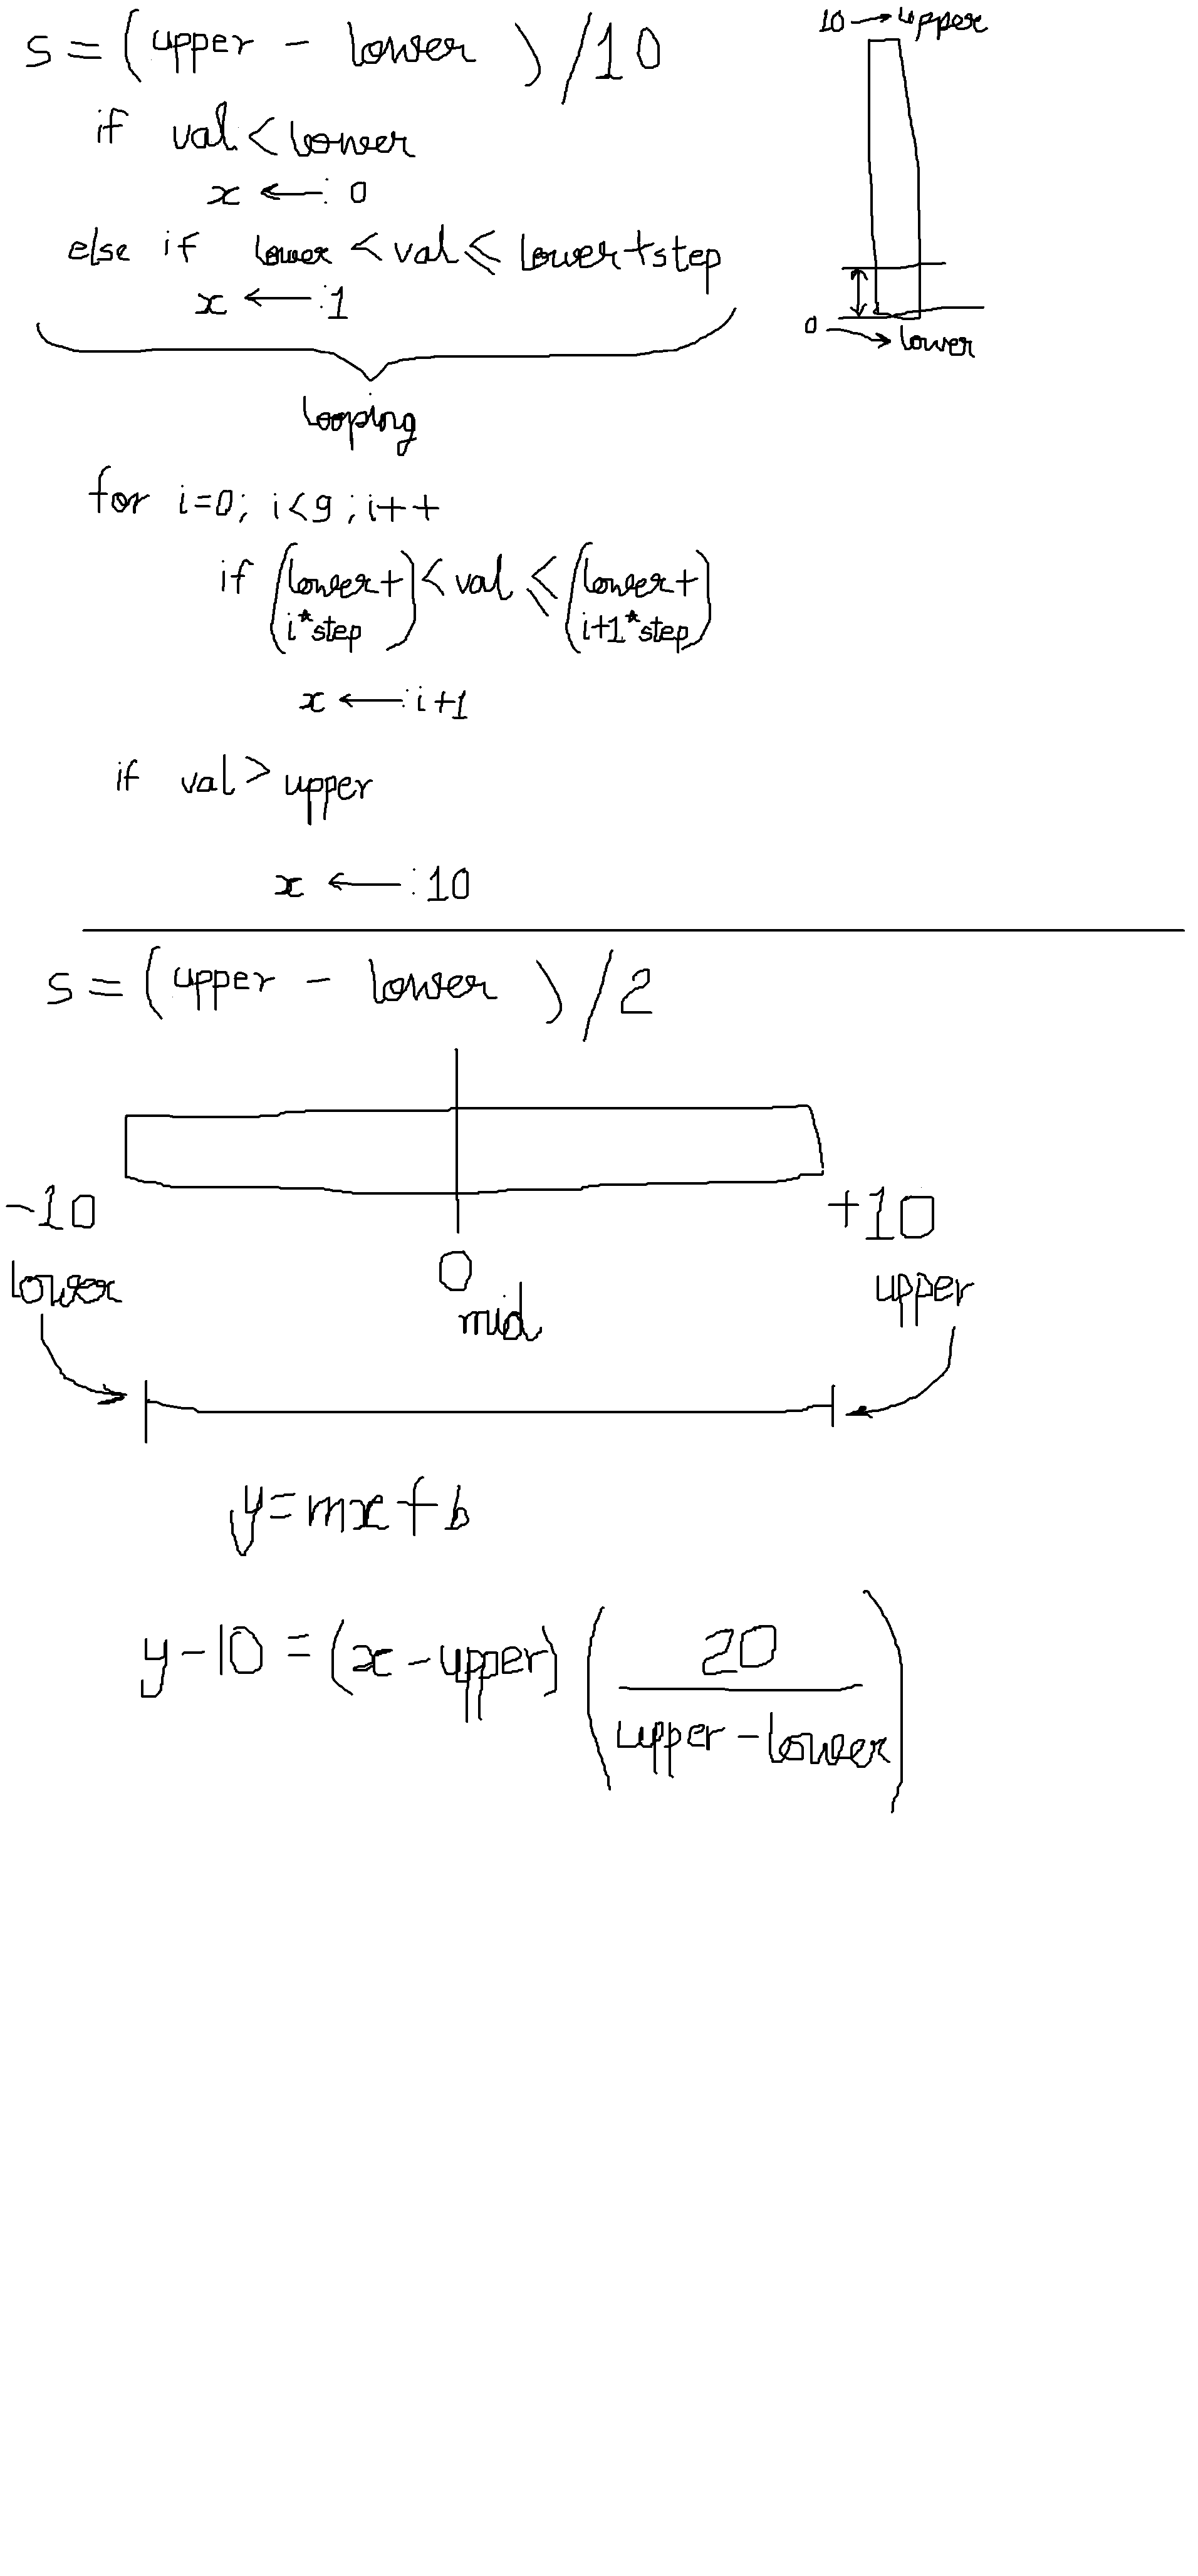 s = (upper - lower) /10
10 → upper
if val < lower
x ← : 0
else if lower < val ≤ lower+step
x ← : 1
0 → lower
looping
for i=0; i<9; i++
if (lower+ i*step) < val ≤ (lower+ i+1*step)
x ← : i+1
if val > upper
x ← : 10
s = (upper - lower) /2
-10
+10
lower
0
mid
upper
y = mx + b
y - 10 = (x - upper) (20 / upper - lower)